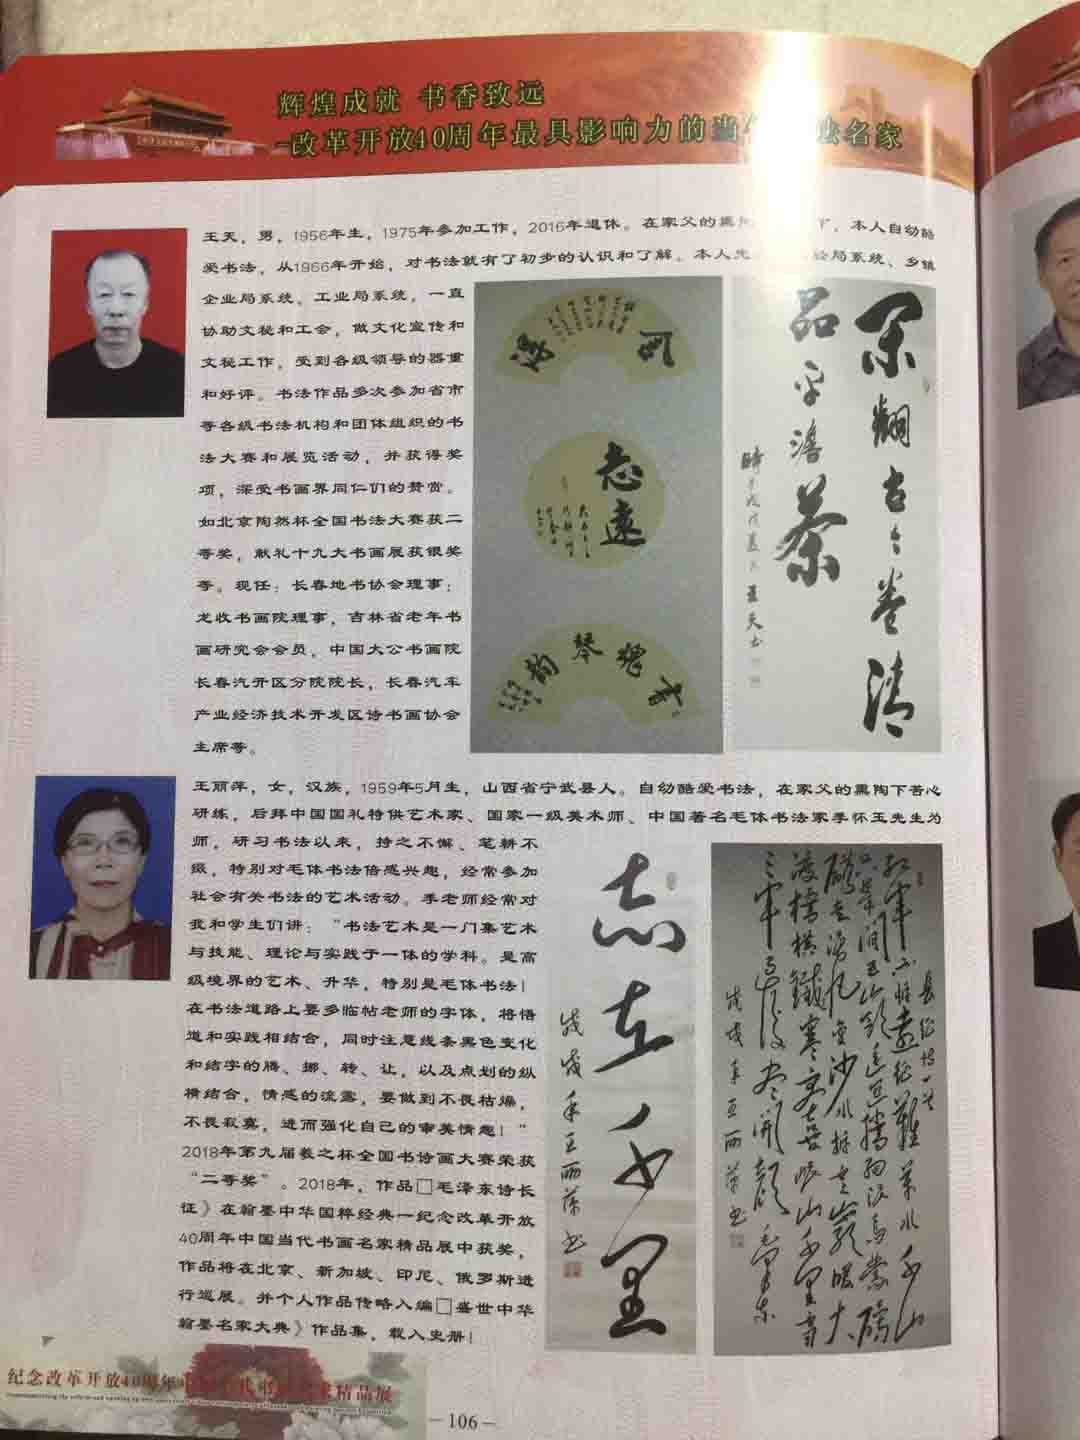 辉煌成就 书香致远
-改革开放40周年最具影响力的当 法名家
王天，男，1956年生，1975年参加工作，2016年退休。在家父的熏 下，本人自幼酷
爱书法，从1966年开始，对书法就有了初步的认识和了解。本人先 局系统、乡镇
企业局系统，工业局系统，一直
协助文秘和工会，做文化宣传和
文秘工作，受到各级领导的器重
和好评。书法作品多次参加省市
等各级书法机构和团体组织的书
法大赛和展览活动，并获得奖
项，深受书画界同仁们的赞赏。
如北京陶然杯全国书法大赛获二
等奖，献礼十九大书画展获银奖
等。现任：长春地书协会理事；
龙收书画院理事，吉林省老年书
画研究会会员，中国大公书画院
长春汽开区分院院长，长春汽车
产业经济技术开发区诗书画协会
主席等。
闲翻古今卷清
品平淡茶
王天书
志远
琴
韵
王丽萍，女，汉族，1959年5月生，山西省宁武县人。自幼酷爱书法，在家父的熏陶下苦心
研练，后拜中国国礼特供艺术家、国家一级美术师、中国著名毛体书法家李怀玉先生为
师，研习书法以来，持之不懈、笔耕不
缀，特别对毛体书法倍感兴趣，经常参加
社会有关书法的艺术活动。李老师经常对
我和学生们讲：“书法艺术是一门集艺术
与技能、理论与实践于一体的学科。是高
级境界的艺术、升华，特别是毛体书法！
在书法道路上要多临帖老师的字体，将悟
道和实践相结合，同时注意线条黑色变化
和结字的腾、挪、转、让，以及点划的纵
横结合，情感的流露，要做到不畏枯燥，
不畏寂寞，进而强化自己的审美情趣！”
2018年第九届羲之杯全国书诗画大赛荣获
“二等奖”。2018年，作品□毛泽东诗长
征》在翰墨中华国粹经典一纪念改革开放
40周年中国当代书画名家精品展中获奖，
作品将在北京、新加坡、印尼、俄罗斯进
行巡展。并个人作品传略入编□盛世中华
翰墨名家大典》作品集，载入史册！
志在千里
戊戌年王丽萍书
长征诗一首
红军不怕远征难万水千山
只等闲五岭逶迤腾细浪乌蒙磅
礴走泥丸金沙水拍云崖暖大
渡桥横铁索寒更喜岷山千里雪
三军过后尽开颜 毛泽东
戊戌年王丽萍书
纪念改革开放40周年 精品展
－106－